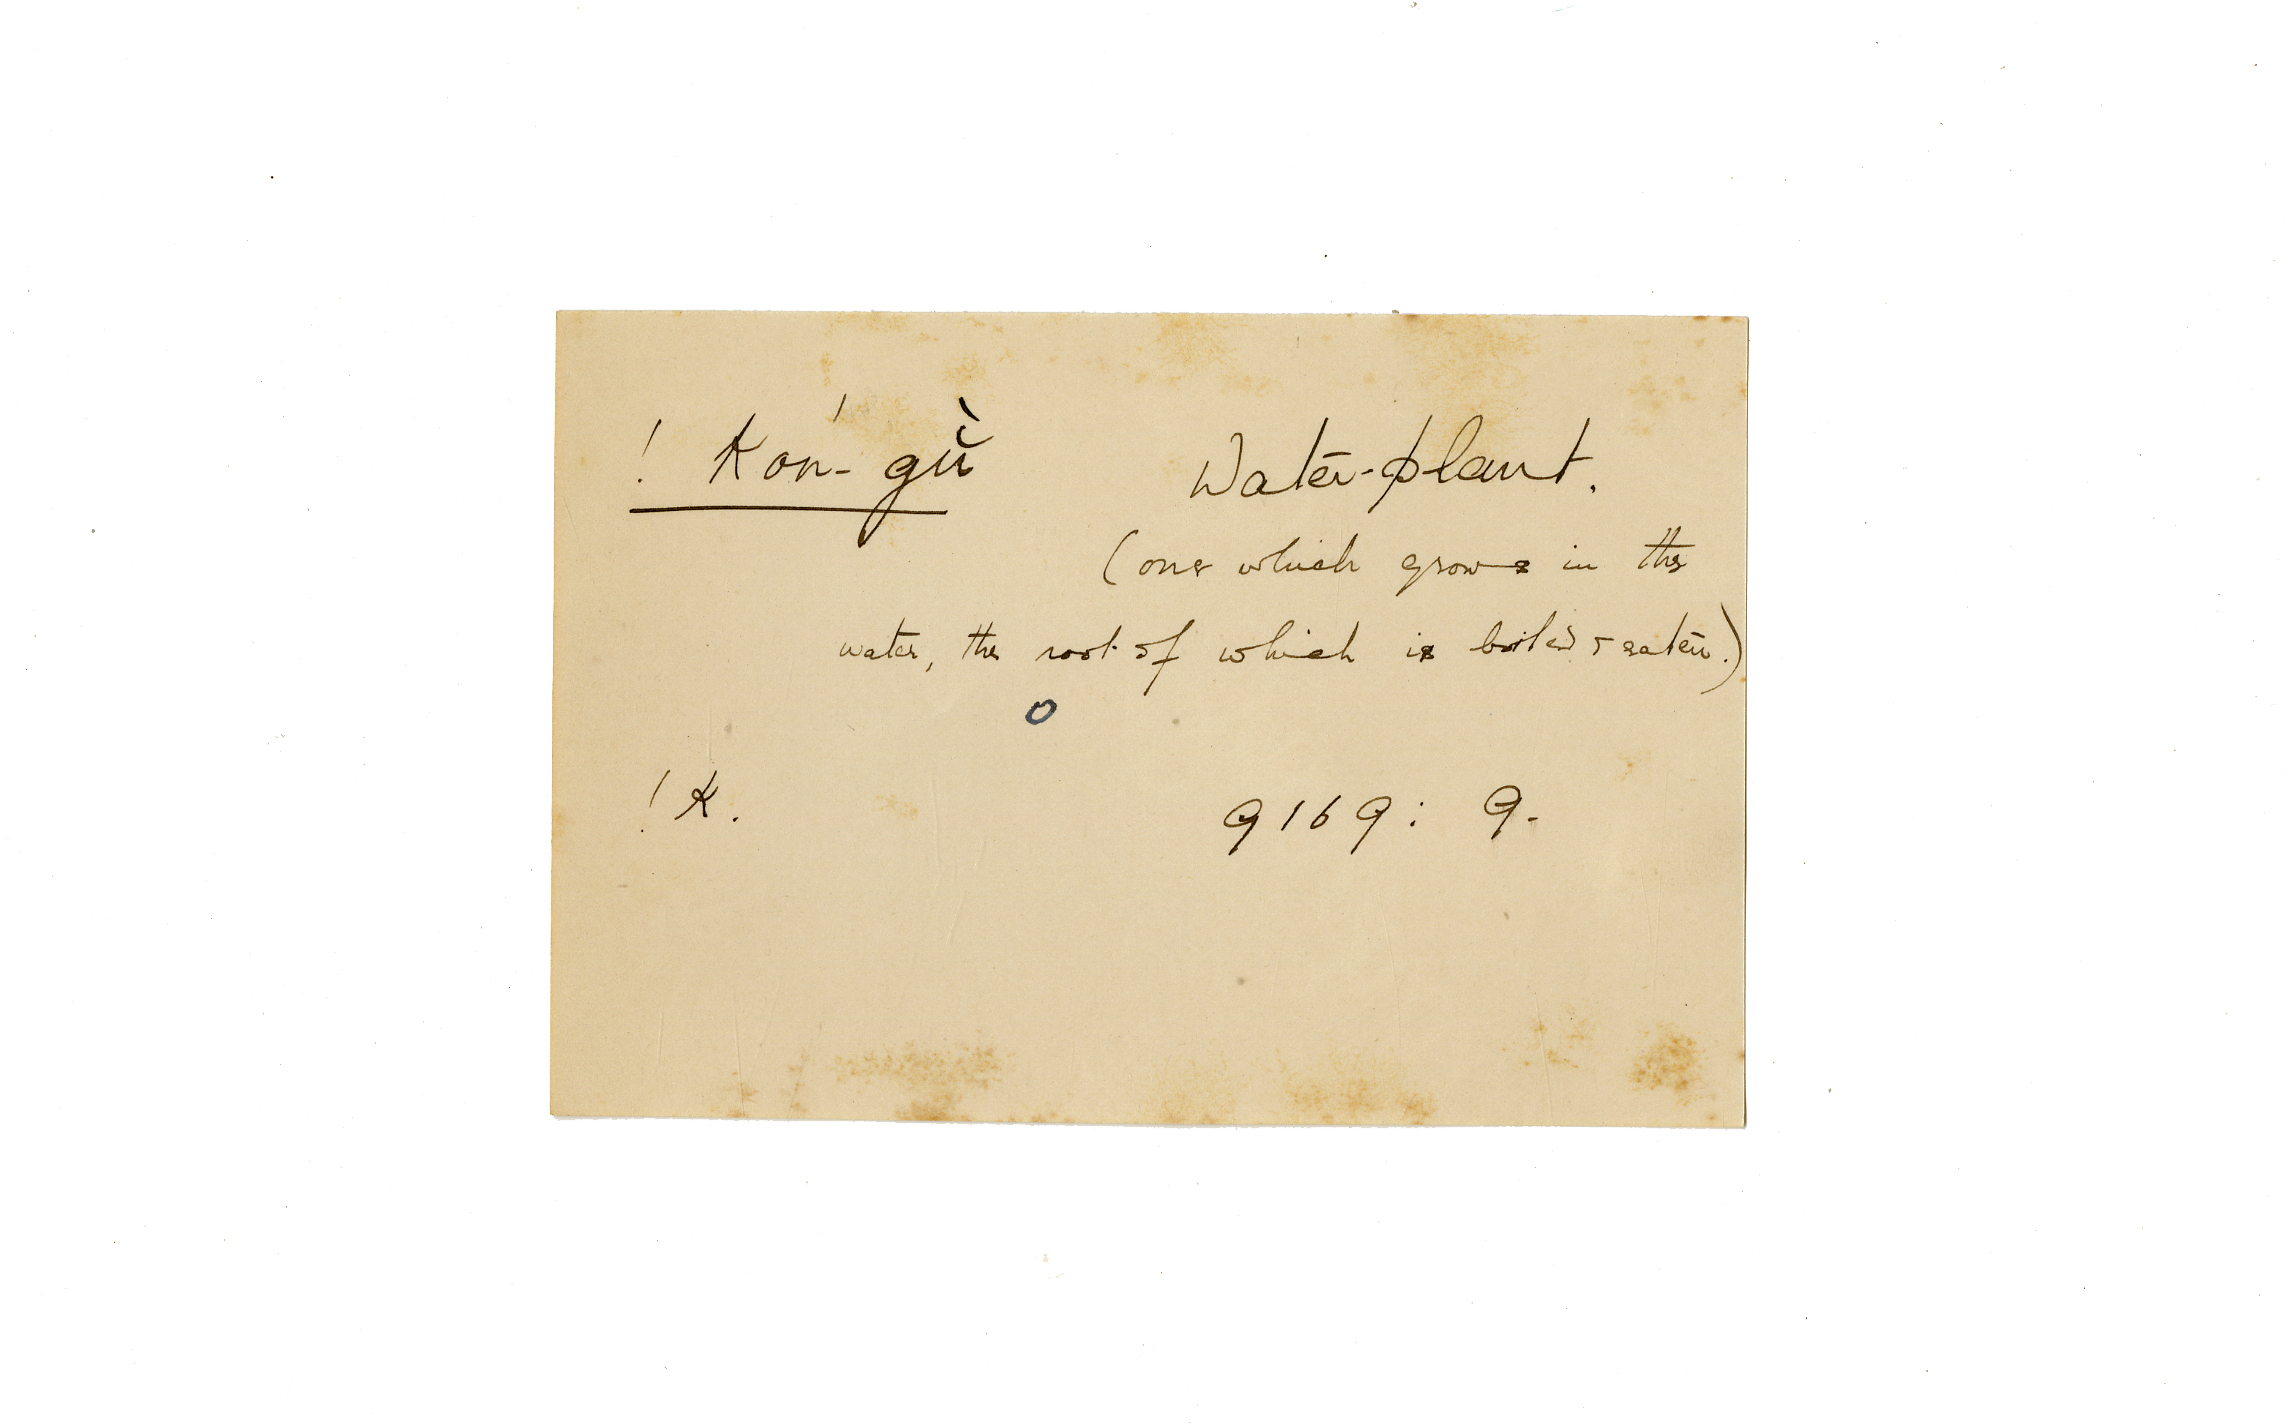 ! Kón-gŭ̀ Water-plant.
(one which grows in the
water, the root of which is boiled & eaten.)
o
! K. 9169: 9.